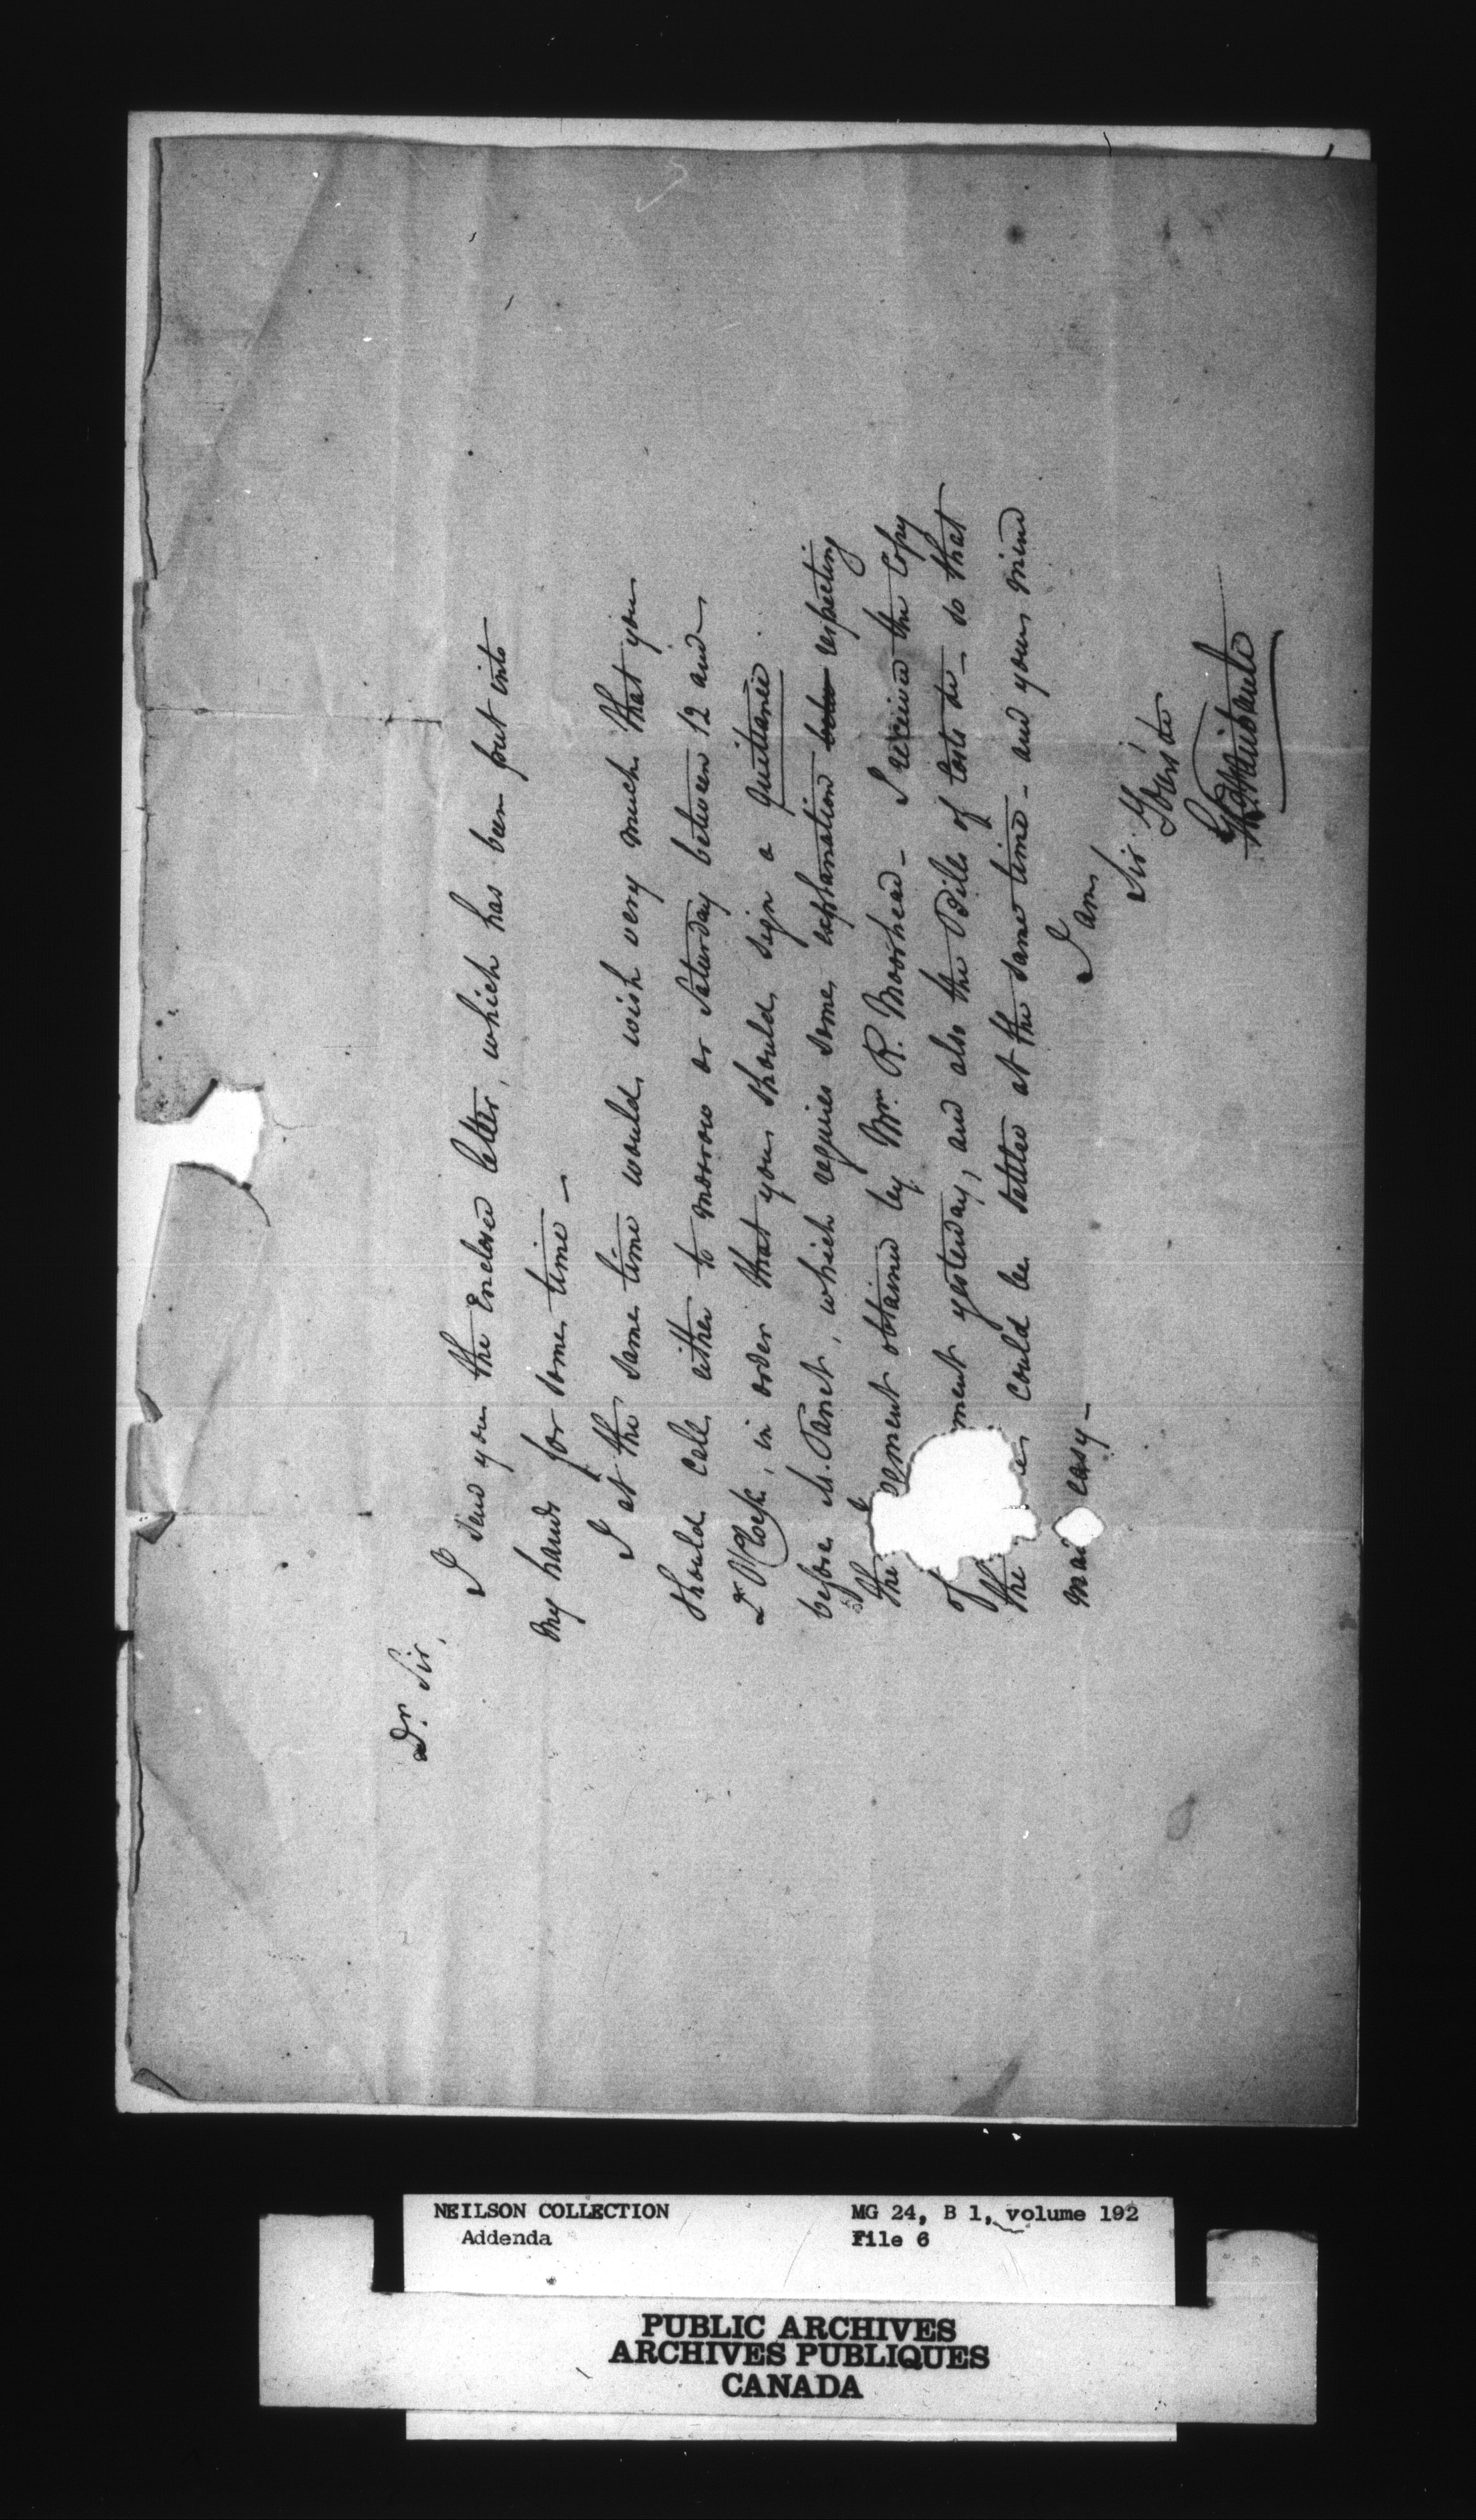 Dr. Sir,
I send you the Enclosed letter, which has been put into
my hands for some time –
I at the same time would wish very much that you
should call either to morrow or Saturday between 12 and
2 O'Clock, in order that you should sign a Quittance
before M. Panet, which requires some explanation respecting
the ement obtained by Mr. R. Moorhead – I received the Copy
of ment yesterday, and also the Bills of Costs &c – so that
the could be settled at the same time – and your mind
easy –
I am
Sir
Yours &c
NEILSON COLLECTION MG 24, B 1, volume 192
Addenda File 6
PUBLIC ARCHIVES
ARCHIVES PUBLIQUES
CANADA